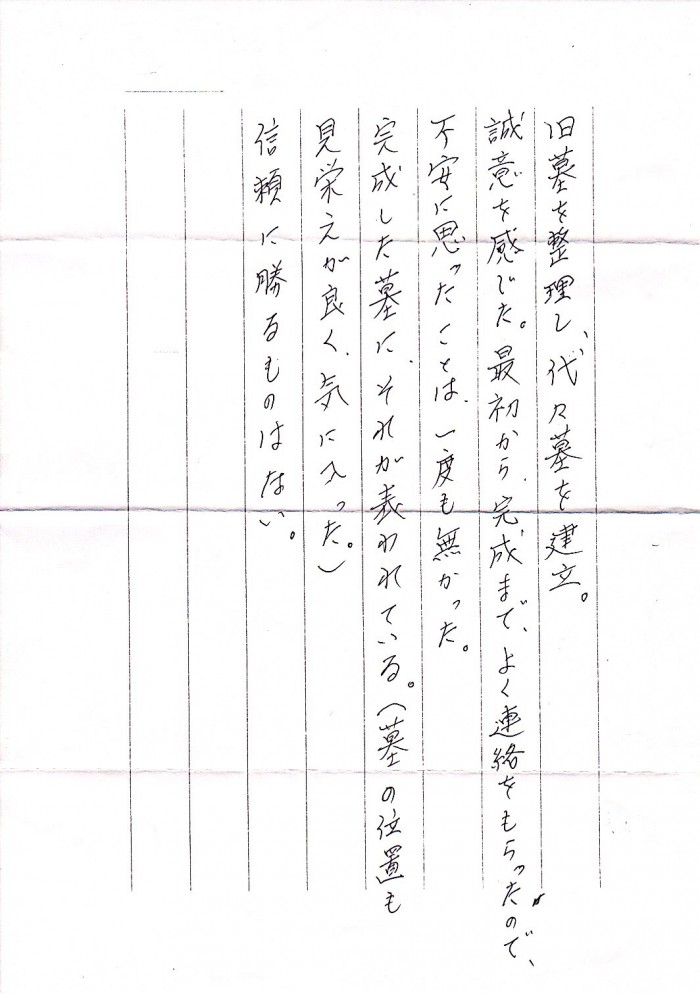 旧墓を整理し、代々墓を建立。
誠意を感じた。最初から、完成まで、よく連絡をもらったので、
不安に思ったことは、一度も無かった。
完成した墓に、それが表われている。(墓の位置も
見栄えが良く、気に入った。)
信頼に勝るものはない。